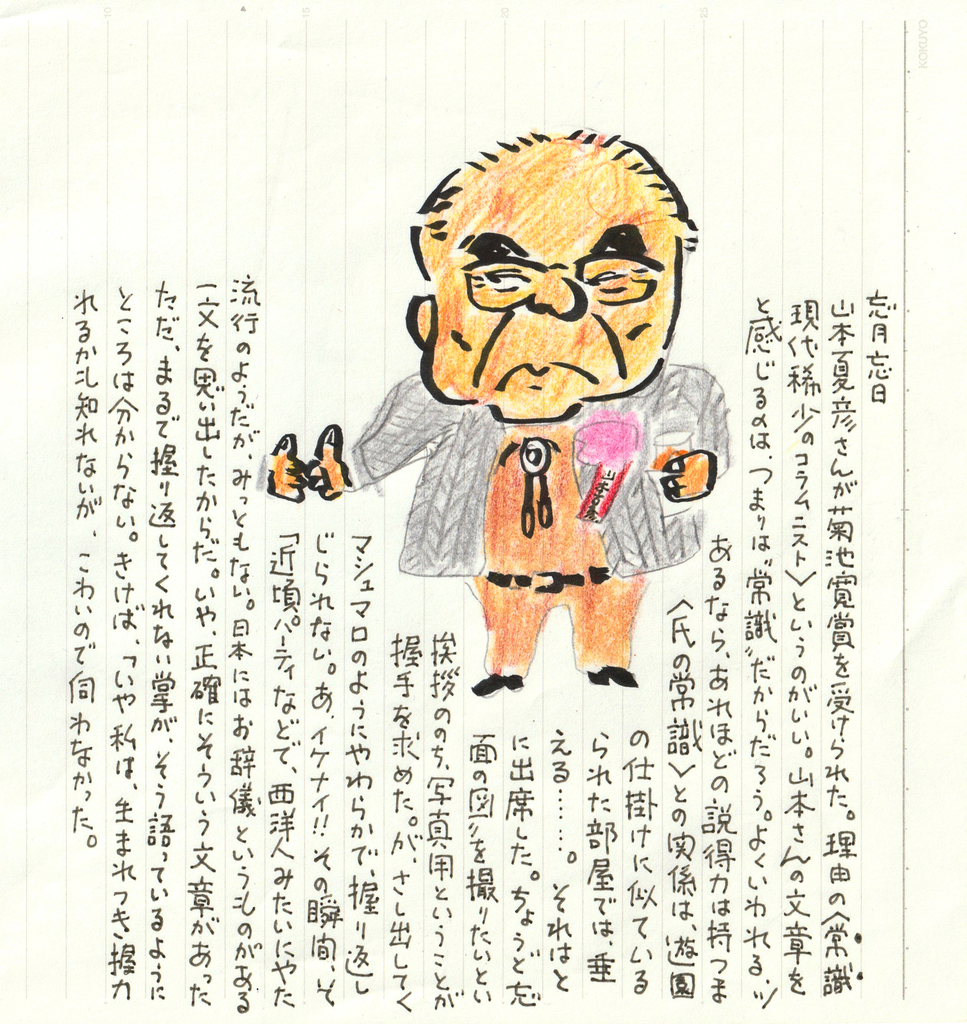 忘月忘日
山本夏彦さんが菊池寛賞を受けられた。理由の〈常識
現代稀少のコラムニスト〉というのがいい。山本さんの文章を
と感じるのは、つまりは〝常識〟だからだろう。よくいわれる、ツ
あるなら、あれほどの説得力は持つま
〈氏の常識〉との関係は、遊園
の仕掛けに似ている
られた部屋では、垂
える……。それはと
に出席した。ちょうど忘
面の図〟を撮りたいとい
挨拶ののち、写真用ということが
握手を求めた。が、さし出してく
マシュマロのようにやわらかで、握り返し
じられない。あ、イケナイ!!その瞬間、そ
「近頃。パーティなどで、西洋人みたいにやた
流行のようだが、みっともない。日本にはお辞儀というものがある
一文を思い出したからだ。いや、正確にそういう文章があった
ただ、まるで握り返してくれない掌が、そう語っているように
ところは分からない。きけば、「いや私は、生まれつき握力
れるかも知れないが、こわいので伺わなかった。
KOKUYO
10
15
20
25